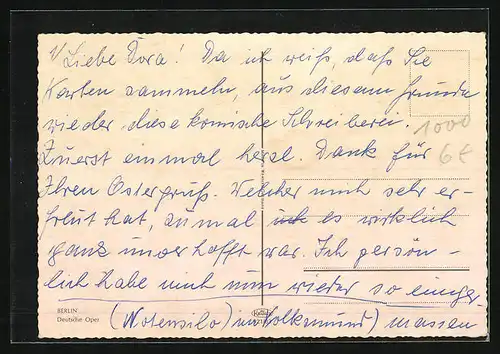 1/ Liebe Dora! Da ich weiß, daß Sie
Karten sammeln, aus diesem Grunde
wieder diese komische Schreiberei.
Zuerst einmal herzl. Dank für
Ihren Ostergruß. Welcher mich sehr er-
freut hat, zumal ich es wirklich
ganz unverhofft war. Ich persön-
lich habe mich nun wieder so einiger-
(Notensilo) im Volksmund) massen
1000
6€
BERLIN
Deutsche Oper